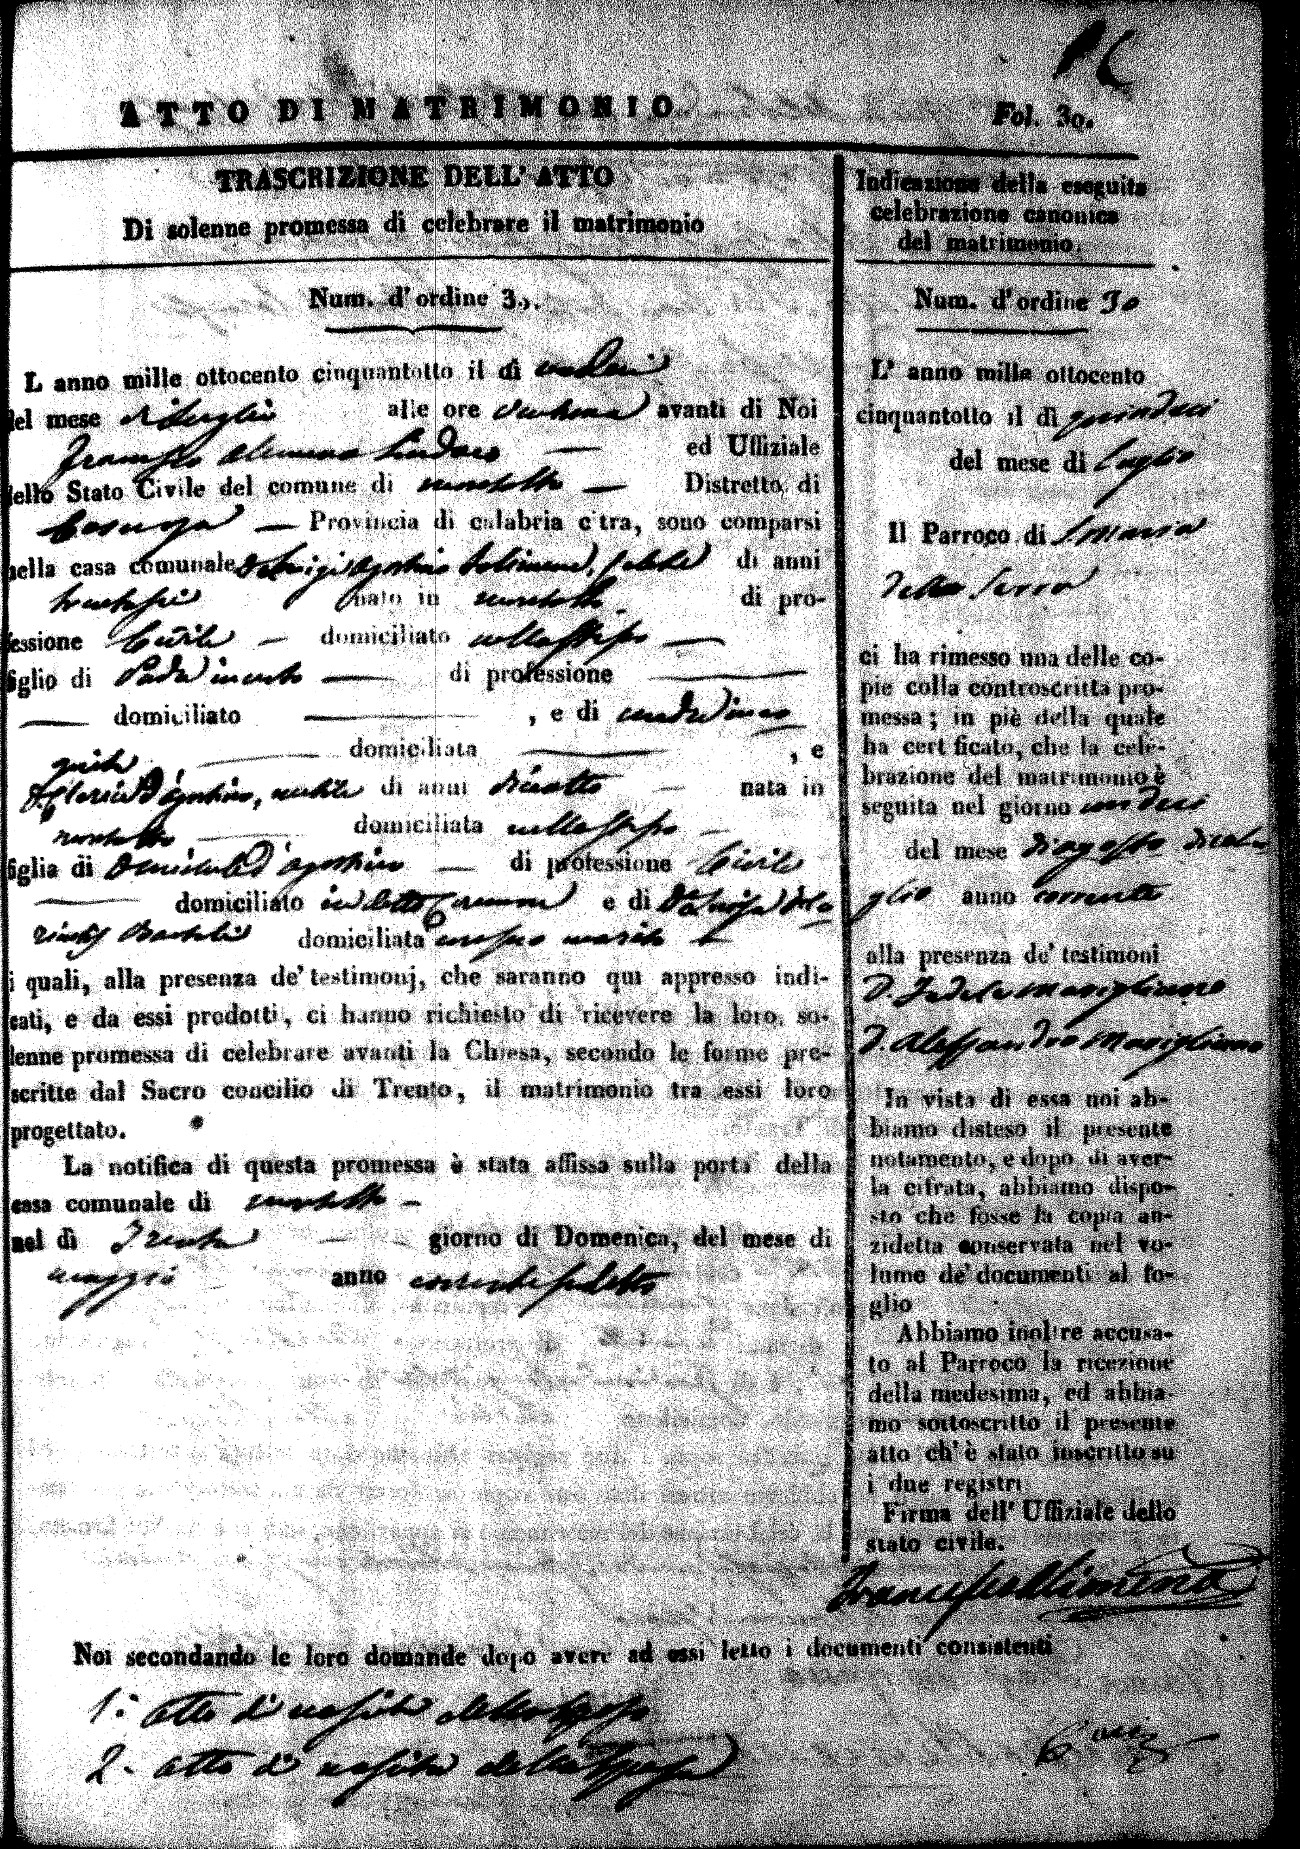 ATTO DI MATRIMONIO
Fol. 30.
TRASCRIZIONE DELL' ATTO
Di solenne promessa di celebrare il matrimonio
Num. d' ordine 30.
L anno mille ottocento cinquantotto il dì
del mese di Luglio alle ore avanti di Noi
Sindaco ed Uffiziale
dello Stato Civile del comune di Distretto di
Cosenza Provincia di calabria citra, sono comparsi
nella casa comunale D. Luigi Agostino Sollimena, celebe di anni
trentasei nato in di pro-
fessione Civile domiciliato nello stesso
figlio di Padre incerto di professione
domiciliato , e di madre
domiciliata , e
D'agostino, nubile di anni diciotto nata in
domiciliata nello stesso
figlia di D'agostino di professione Civile
domiciliato in detto Comune e di
domiciliata
i quali, alla presenza de' testimonj, che saranno qui appresso indi-
cati, e da essi prodotti, ci hanno richiesto di ricevere la loro so-
lenne promessa di celebrare avanti la Chiesa, secondo le forme pre-
scritte dal Sacro concilio di Trento, il matrimonio tra essi loro
progettato.
La notifica di questa promessa è stata affissa sulla porta della
casa comunale di
nel dì Trenta giorno di Domenica, del mese di
maggio anno corrente suddetto
Indicazione della eseguita
celebrazione canonica
del matrimonio.
Num. d' ordine 30
L' anno mille ottocento
cinquantotto il dì quindici
del mese di Luglio
Il Parroco di S. Maria
della Serra
ci ha rimesso una delle co-
pie colla controscritta pro-
messa; in piè della quale
ha certificato, che la cele-
brazione del matrimonio è
seguita nel giorno undeci
del mese di
anno corrente
alla presenza de' testimoni
D. Fedele Marigliano
D. Alessandro Marigliano
In vista di essa noi ab-
biamo disteso il presente
notamento, e dopo di aver-
la cifrata, abbiamo dispo-
sto che fosse la copia an-
zidetta conservata nel vo-
lume de' documenti al fo-
glio
Abbiamo inoltre accusa-
to al Parroco la ricezione
della medesima, ed abbia-
mo sottoscritto il presente
atto ch' è stato inscritto su
i due registri
Firma dell' Uffiziale dello
stato civile.
Noi secondando le loro domande dopo avere ad essi letto i documenti consistenti
1.° atto di nascita dello sposo
2.° atto di nascita della sposa